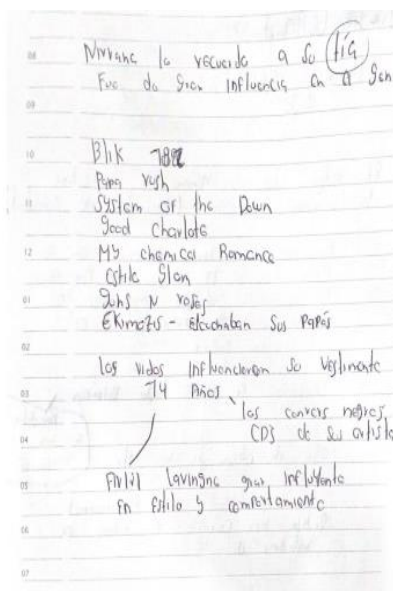 08
Nirvana le recuerda a su tía
Fue de gran influencia en el gen
09
10
Blik 182
Papa rosh
11
System of the Down
good charlote
12
My chemical Romance
Estilo Glan
01
guns N roses
Ekimozis - Escuchaban sus Papás
02
Los vidos influencieron su vestimenta
03
14 Años
los convers negros
04
CDs de sus artista
05
Avril Lavingne gran influyente
en Estilo y comportamiento
06
07